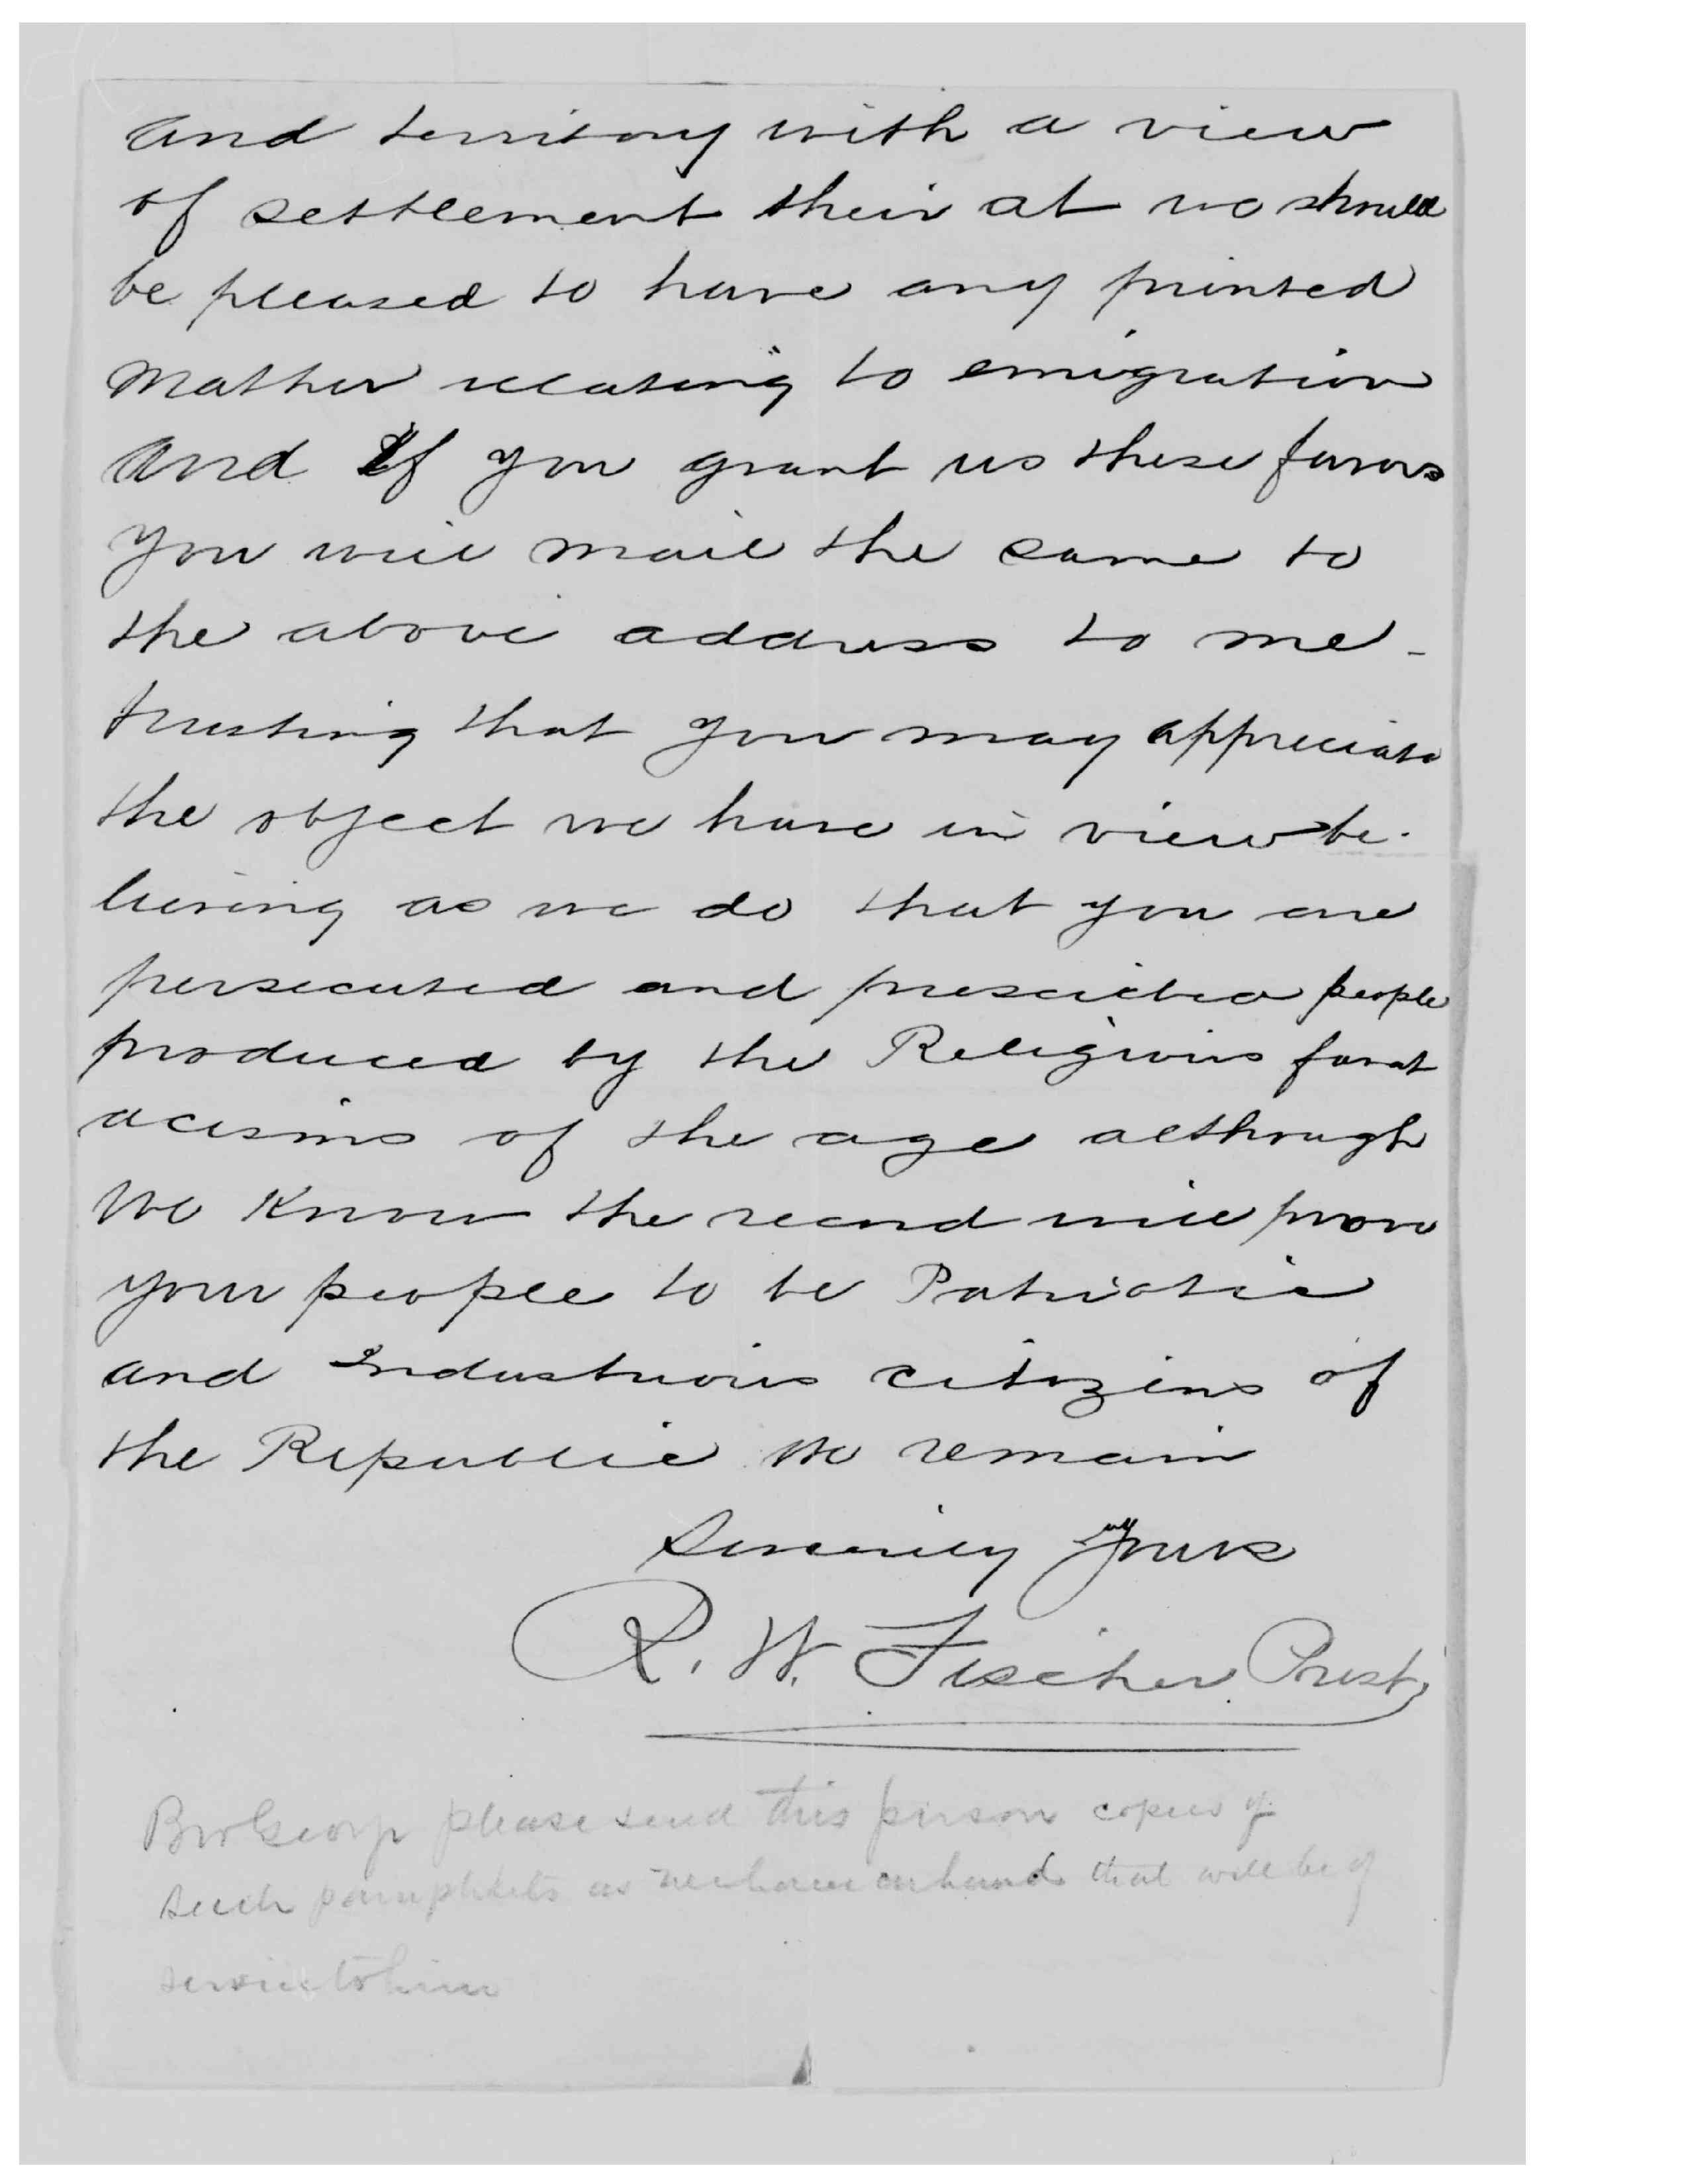 and territory with a view
of settlement their at we should
be pleased to have any printed
Matter relating to emigration
and If you grant us these favors
you will mail the same to
the above address to me -
trusting that you may appreciate
the object we have in view be-
lieving as we do that you are
persecuted and proscribed people
produced by the Religious fanat
acisms of the age although
We Know the record will prove
your people to be Patriotic
and Industrious citizens of
the Republic We remain
Sincerely Yours
R. W. Fischer Prest,
Bro George please send this person copies of
such pamphlets as we have on hand that will be of
service to him